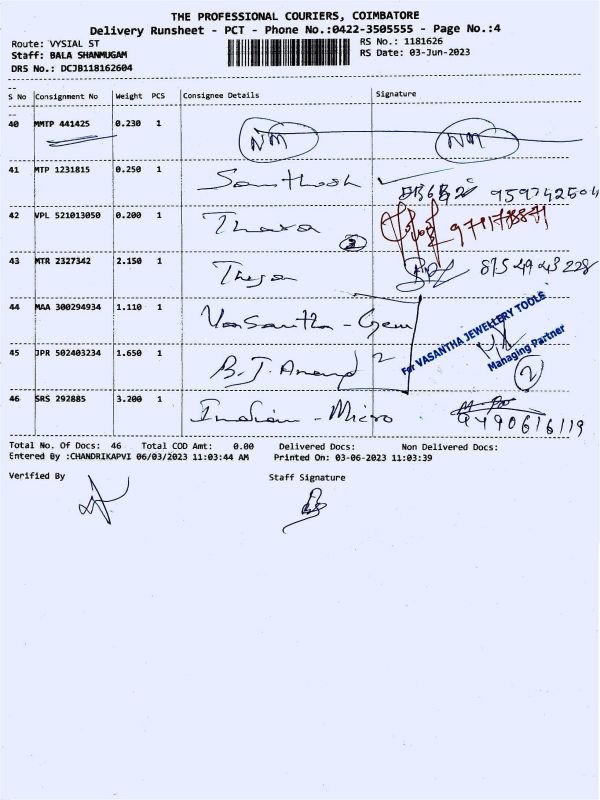 THE PROFESSIONAL COURIERS, COIMBATORE
Delivery Runsheet - PCT - Phone No.:0422-3505555 - Page No.:4
Route: VYSIAL ST RS No.: 1181626
Staff: BALA SHANMUGAM RS Date: 03-Jun-2023
DRS No.: DCJB118162604
S No Consignment No Weight PCS Consignee Details Signature
40 MMTP 441425 0.230 1 NM NM
41 MTP 1231815 0.250 1 Santhosh
42 VPL 521013050 0.200 1 Thara
43 MTR 2327342 2.150 1 875 4943 228
44 MAA 300294934 1.110 1 Vasantha - Gem
For VASANTHA JEWELLERY TOOLS
45 JPR 502403234 1.650 1 B.J. Anand 2
Managing Partner
2
46 SRS 292885 3.200 1 Indian - Micro 9490616119
Total No. Of Docs: 46 Total COD Amt: 0.00 Delivered Docs: Non Delivered Docs:
Entered By :CHANDRIKAPVI 06/03/2023 11:03:44 AM Printed On: 03-06-2023 11:03:39
Verified By Staff Signature